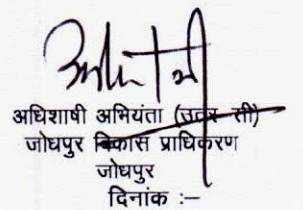 अधिशाषी अभियंता (उत्तर सी)
जोधपुर विकास प्राधिकरण
जोधपुर
दिनांक :–